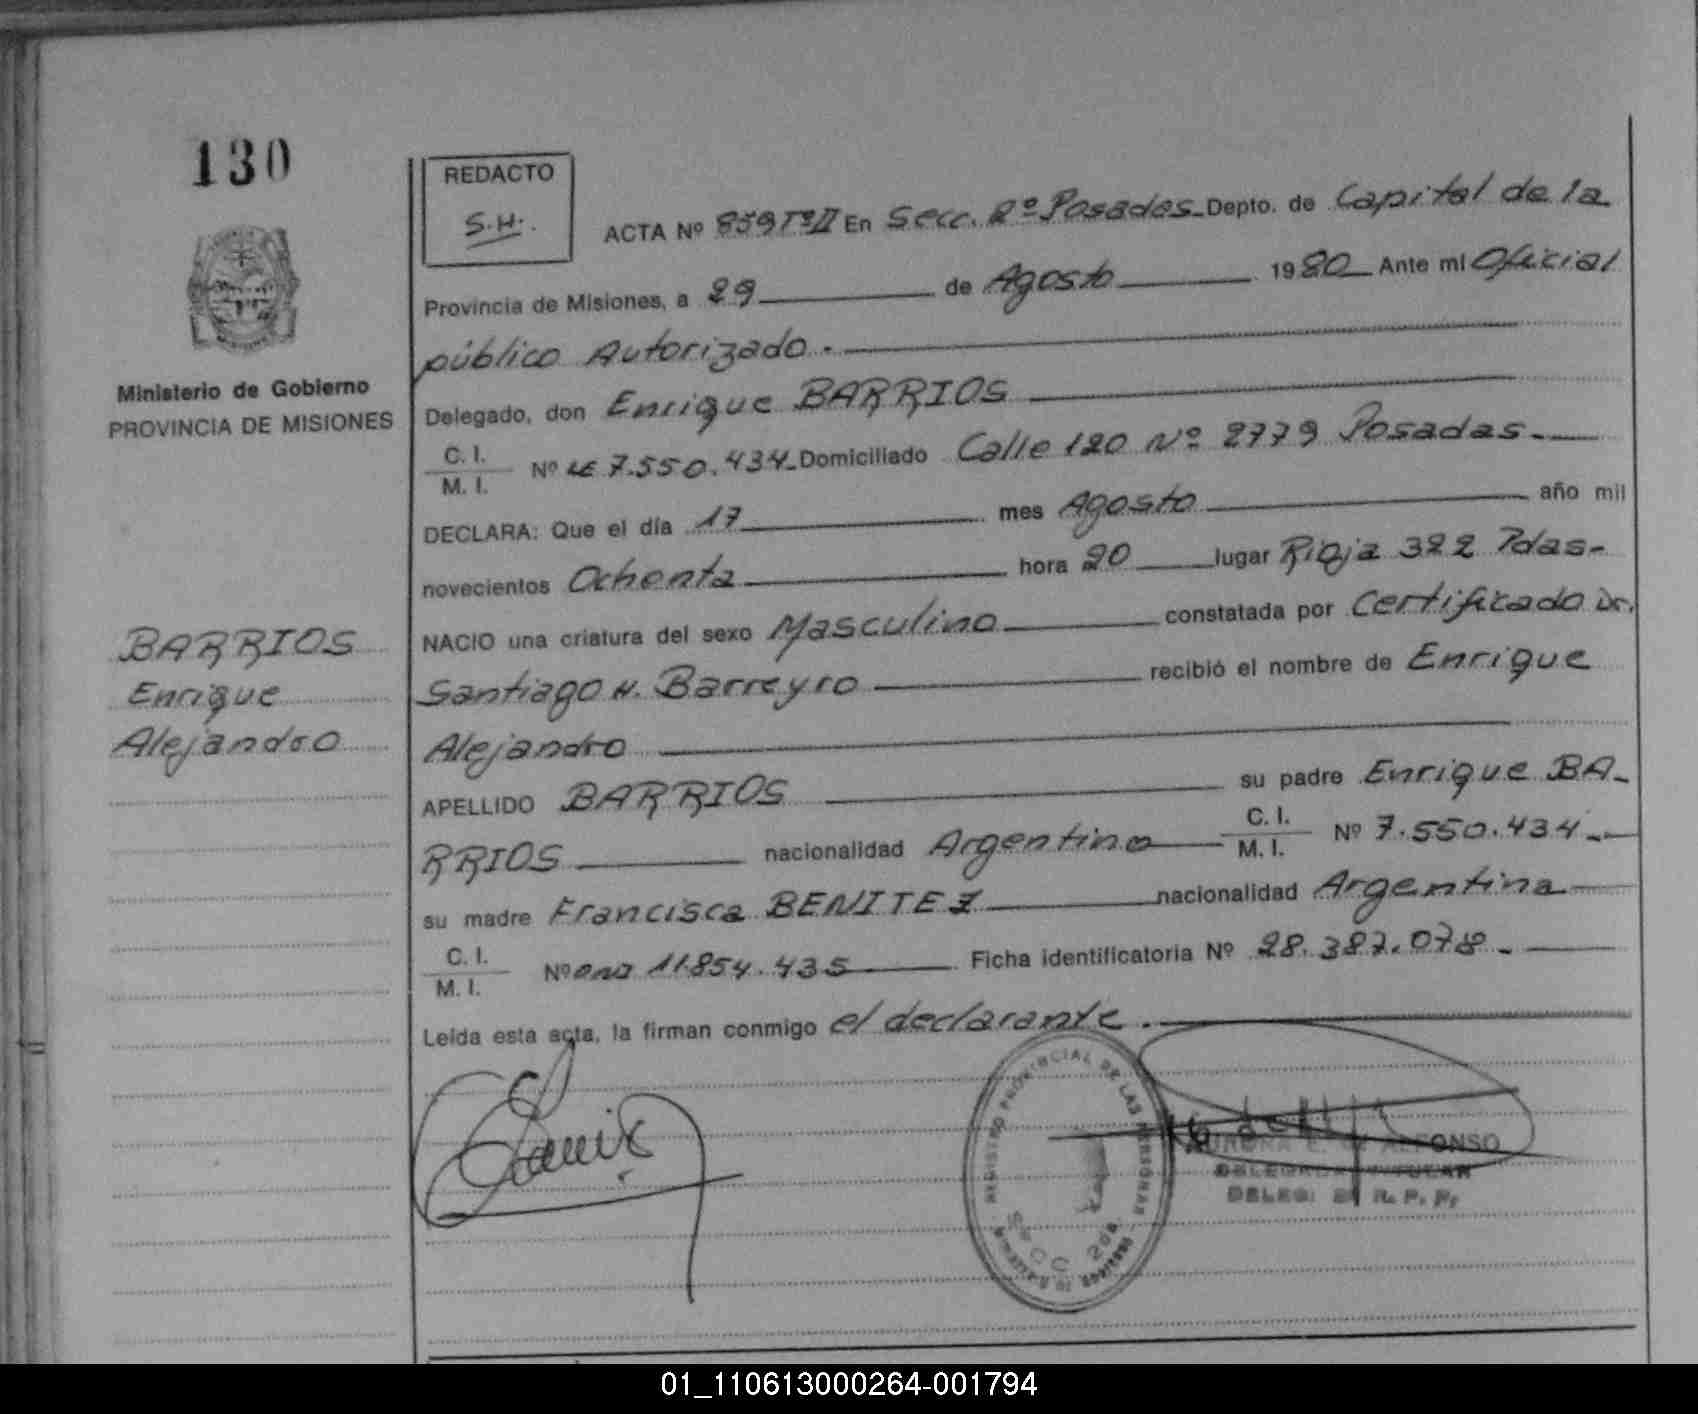 130
REDACTO
S.H.
ACTA Nº 859 TºII En Secc. 2º Posadas Depto. de Capital de la
Provincia de Misiones, a 29 de Agosto 1980 Ante mi Oficial
público Autorizado.
Ministerio de Gobierno
PROVINCIA DE MISIONES
Delegado, don Enrique BARRIOS
C. I.
M. I.
Nº LE 7.550.434 Domiciliado Calle 120 Nº 2779 Posadas
DECLARA: Que el día 17 mes Agosto año mil
novecientos Ochenta hora 20 lugar Rioja 322 Pdas-
NACIO una criatura del sexo Masculino constatada por Certificado Dr.
Santiago H. Barreyro recibió el nombre de Enrique
Alejandro
BARRIOS
Enrique
Alejandro
APELLIDO BARRIOS su padre Enrique BA-
RRIOS nacionalidad Argentino C. I. M. I. Nº 7.550.434
su madre Francisca BENITEZ nacionalidad Argentina
C. I.
M. I.
Nº DNI 11.854.435 Ficha identificatoria Nº 28.387.078
Leida esta acta, la firman conmigo el declarante.
REGISTRO PROVINCIAL DE LAS PERSONAS
SECC 2da
ALFONSO
DELEGADA TITULAR
DELEG. R. P. P.
01_110613000264-001794